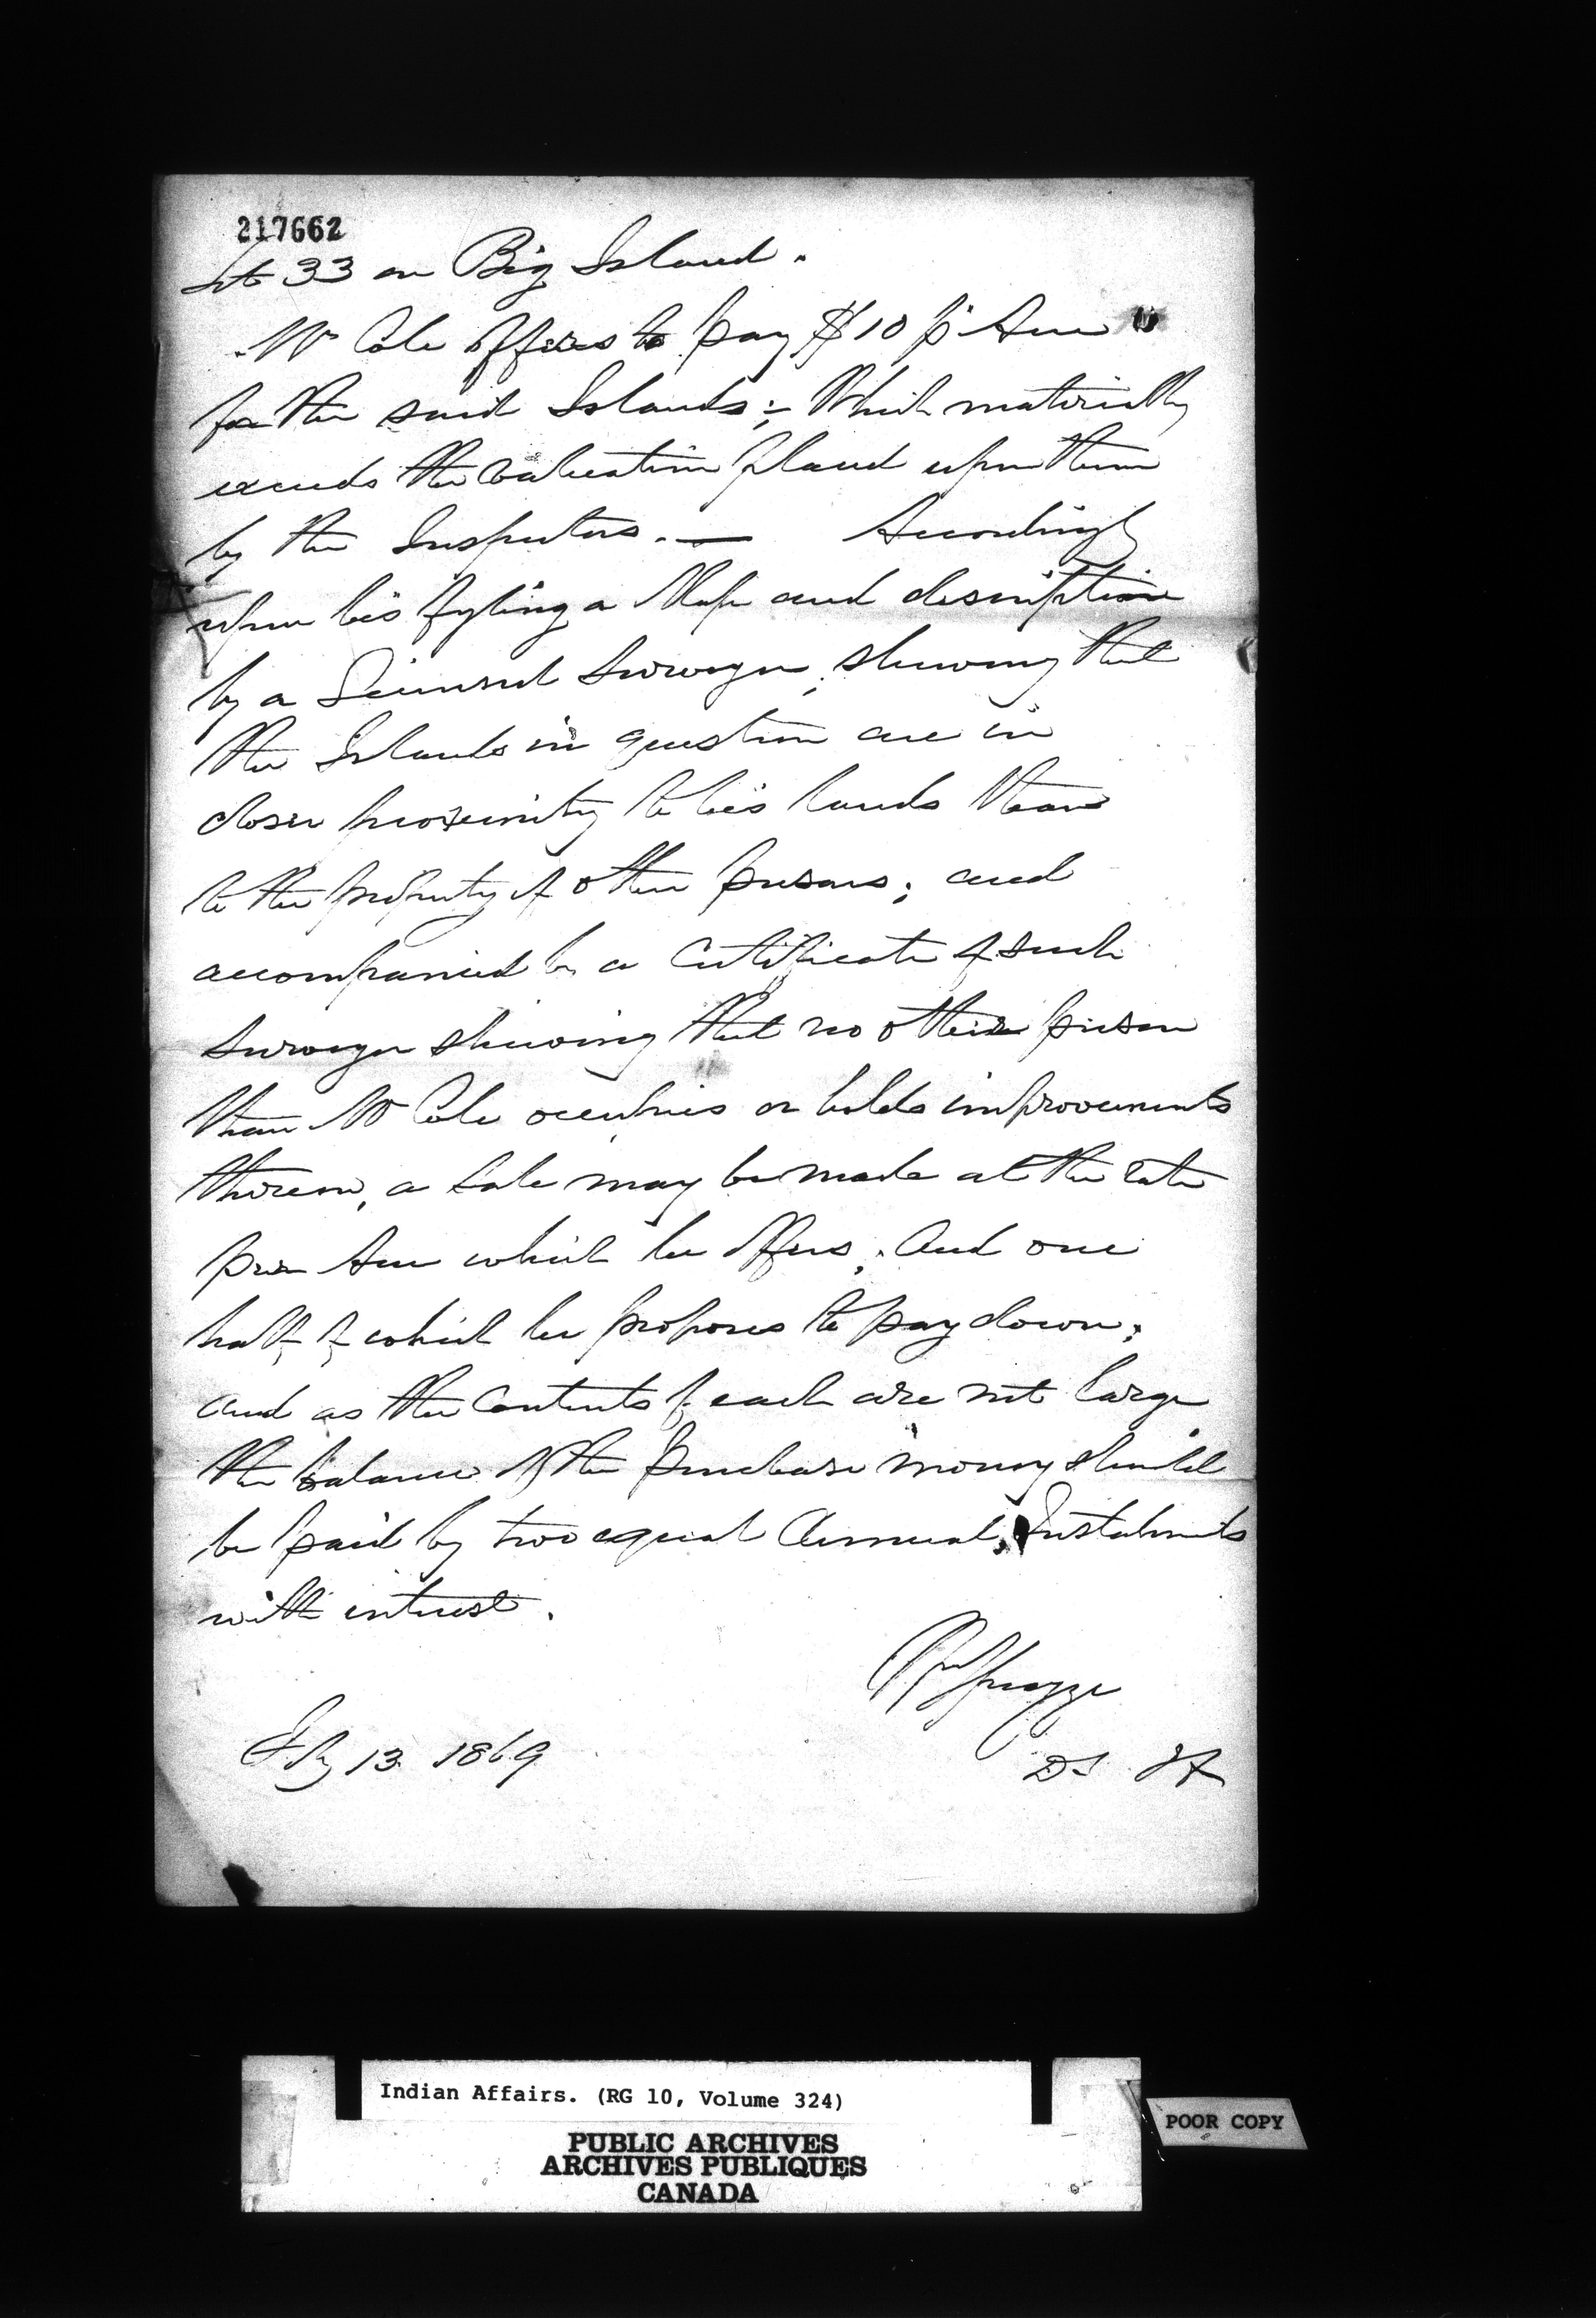 217662
Lot 33 on Big Island.
Mr Cole offers to pay $10 pr Acre
for the said Islands; Which materially
exceeds the valuation placed upon them
by the Inspectors. — Accordingly
upon his fyling a Map and description
by a Licensed Surveyor, shewing that
the Islands in question are in
closer proximity to his lands than
to the property of other persons; and
accompanied by a Certificate of such
Surveyor shewing that no other person
than Mr Cole occupies or holds improvements
thereon, a Sale may be made at the rate
per Acre which he offers, and one
half of which he proposes to pay down;
and as the Contents of each are not large
the balance of the purchase money should
be paid by two equal Annual Instalments
with interest.
Spragge
Feby 13 1869
DS IA
Indian Affairs. (RG 10, Volume 324)
PUBLIC ARCHIVES
ARCHIVES PUBLIQUES
CANADA
POOR COPY